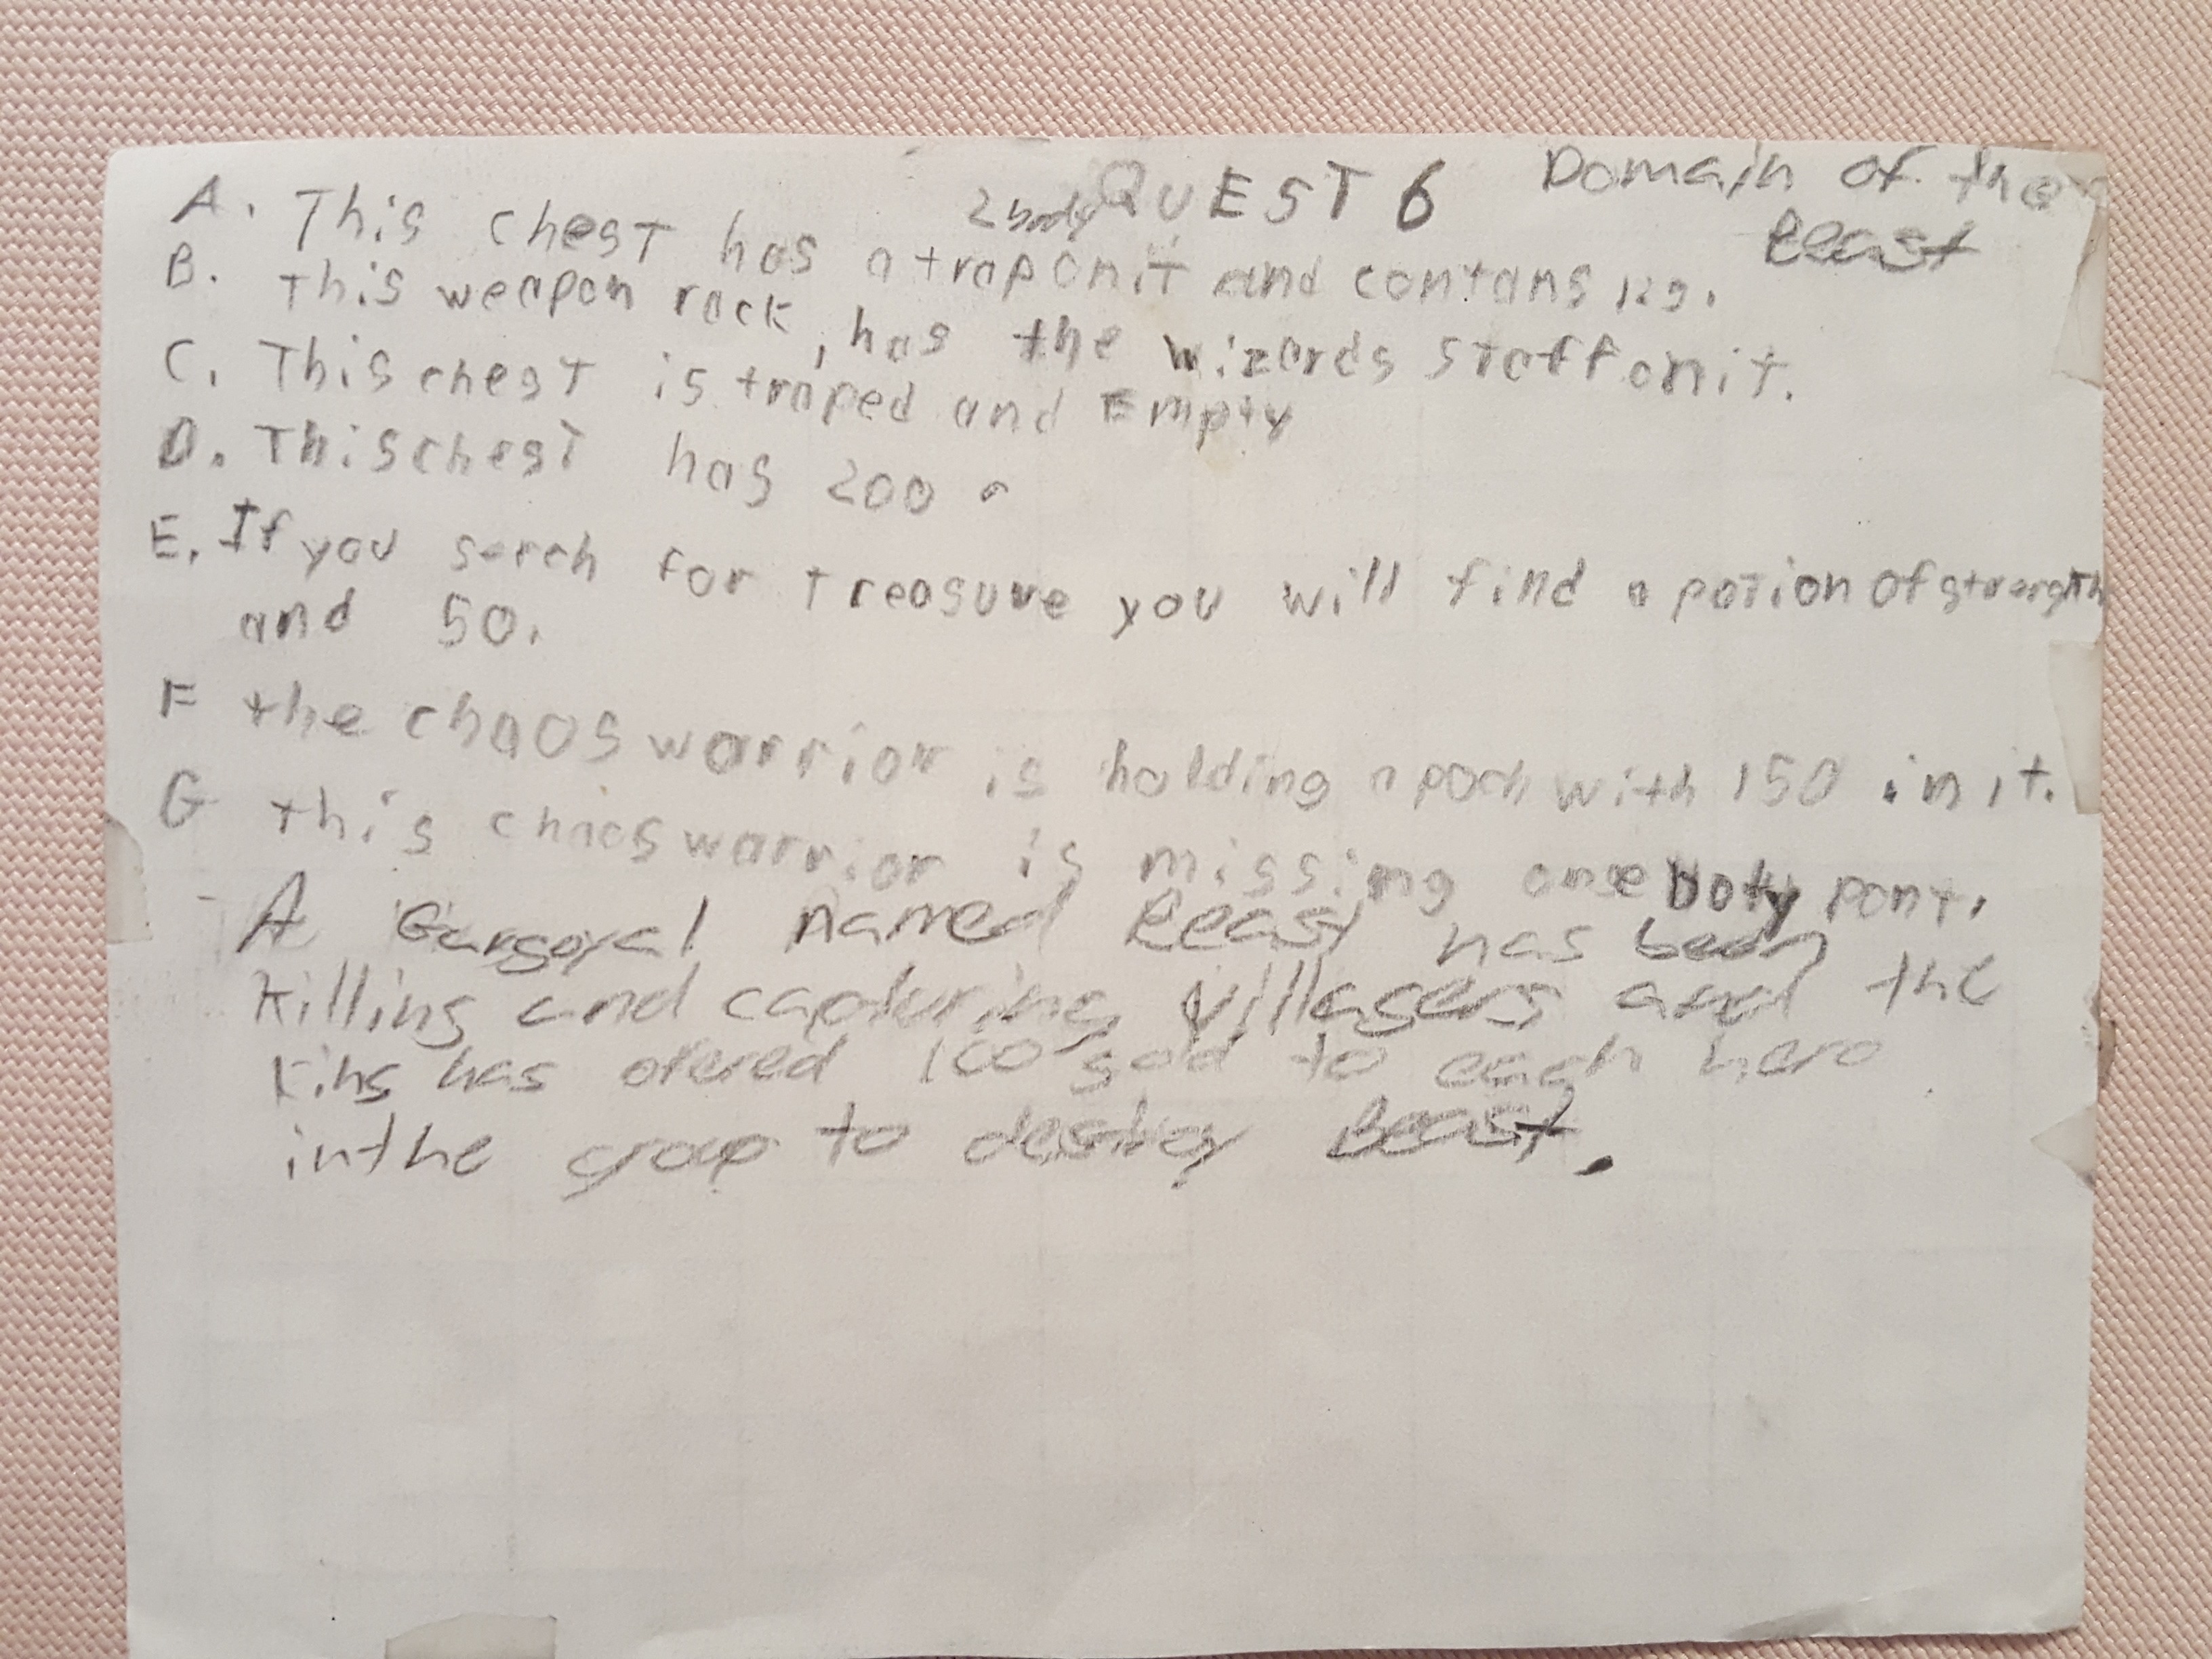 QUEST 6 Domain of the
Beast
2 body
A. This chest has a trap on it and contans 129.
B. This weapon rack, has the wizards staff on it.
C. This chest is traped and Empty
D. This chest has 200.
E. If you serch for treasure you will find a potion of strength
and 50.
F the chaos warrior is holding a poch with 150 in it.
G this chaos warrior is missing one boty
A Gargoyal named Beast has been
killing and capturing villagers and the
king has ofered 100 gold to each hero
in the group to destroy Beast.